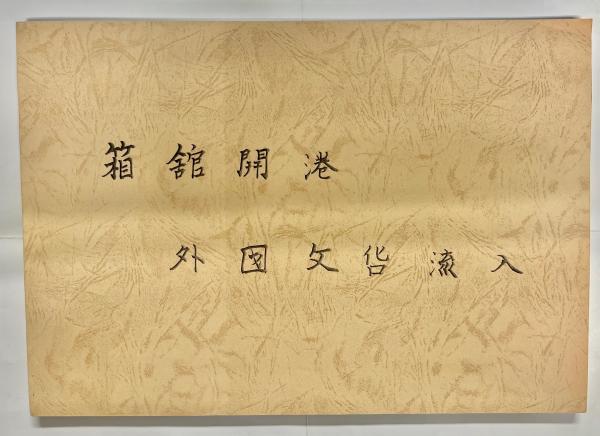 箱舘開港
外国文化流入